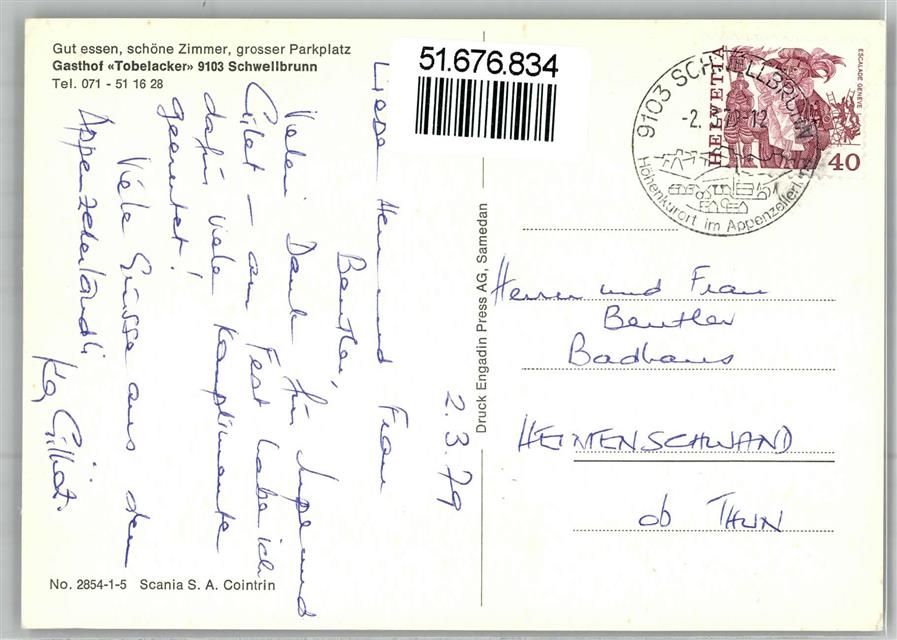 Gut essen, schöne Zimmer, grosser Parkplatz
Gasthof «Tobelacker» 9103 Schwellbrunn
Tel. 071 - 51 16 28
51.676.834
Liebe Herr und Frau
Beutler,
Vielen Dank für Jupe und
Gilet – am Fest habe ich
dafür viele Komplimente
geerntet!
Viele Grüsse aus dem
Appenzellerländli
2.3.79
Druck Engadin Press AG, Samedan
No. 2854-1-5 Scania S. A. Cointrin
9103 SCHWELLBRUNN
-2. 79-12
Höhenkurort im Appenzellerland
HELVETIA
ESCALADE GENÈVE
40
Herrn und Frau
Beutler
Badhaus
HEIMENSCHWAND
ob THUN